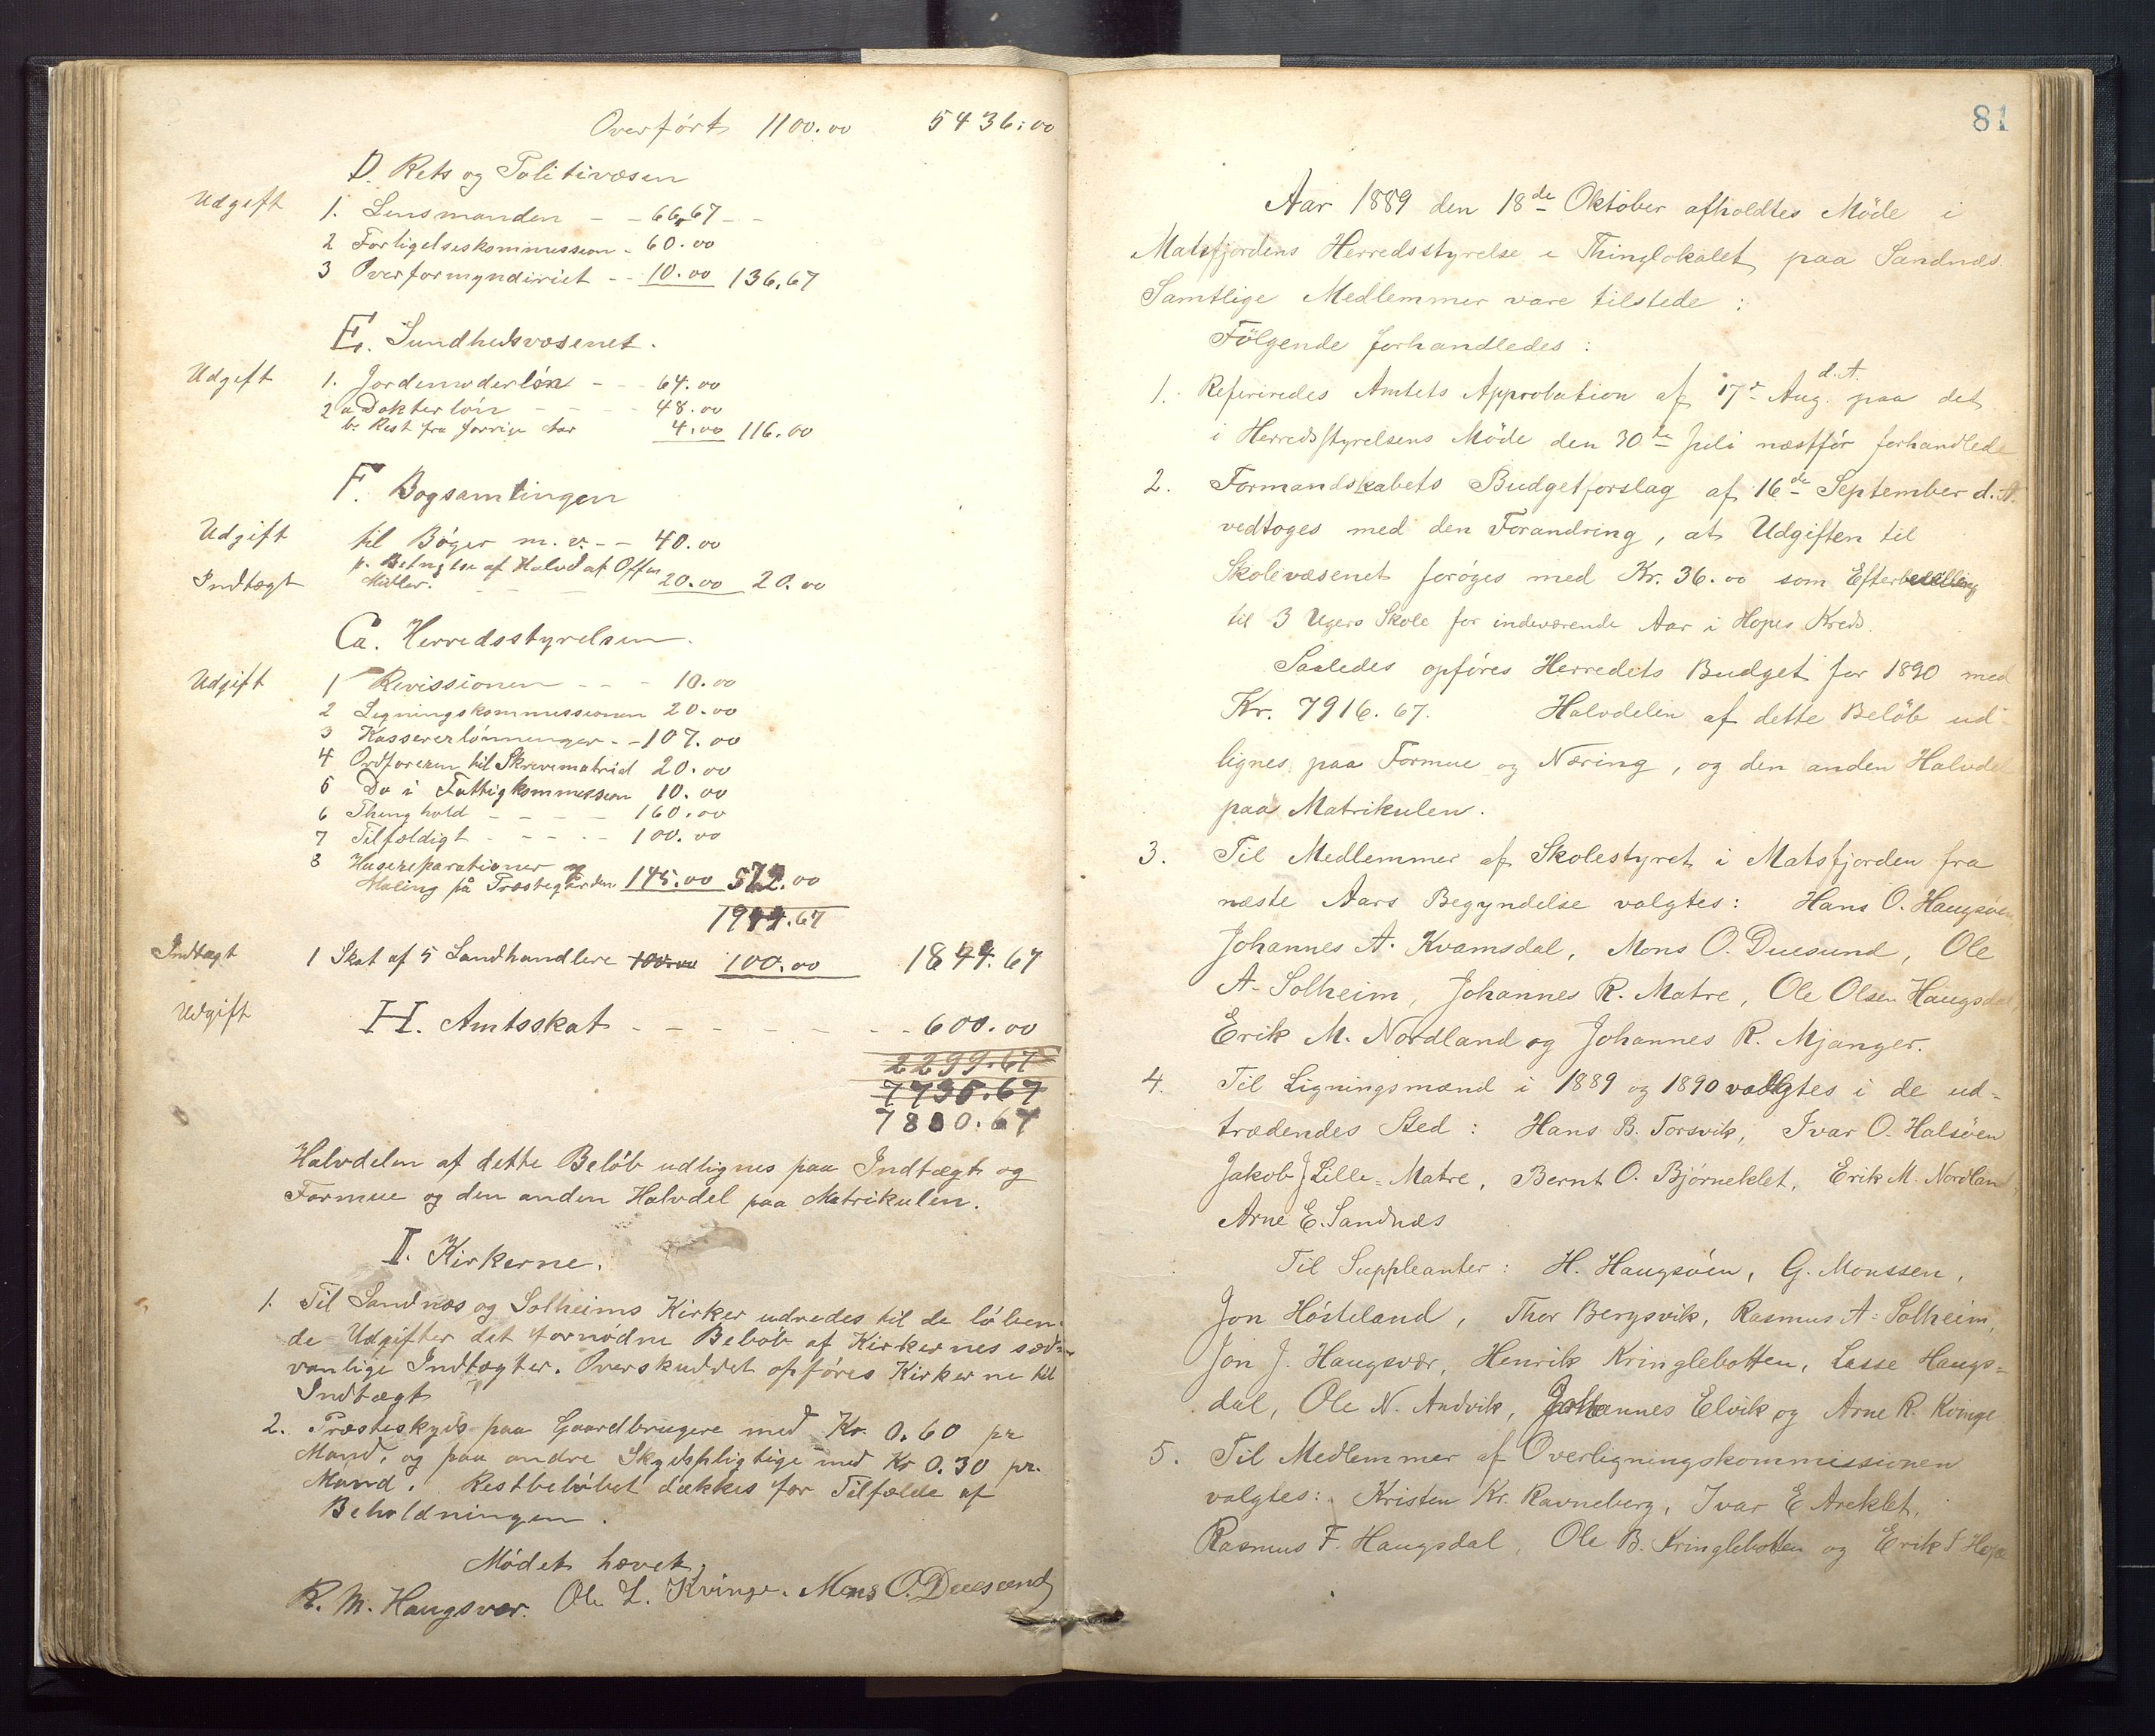 Overført 1100.00 5436.00
D. Rets og Politivæsen
Udgift 1. Lensmanden - - 66,67 - -
2 Forligelseskommission - 60.00
3 Overformynderiet - - 10.00 136,67
E. Sundhedsvæsenet.
Udgift 1. Jordemoderløn - - - 64.00
2 a Dokterløn - - - - 48.00
b. Rest fra forrige Aar 4.00 116.00
F. Bogsamlingen
Udgift til Bøger m. v. - - 40.00
p. af Halvd af Offen
Indtægt Midler. - - - 20.00 20.00
Ca. Herredsstyrelsen.
Udgift 1 Revissionen - - - 10.00
2 Ligningskommissionen 20.00
3 Kassererlønninger - - 107.00
4 Ordføreren til Skrivematriel 20.00
5 Do i Fattigkommission 10.00
6 Thinghold - - - - 160.00
7 Tilfældigt - - - - 100.00
8 Husereparationer og
Maling på Præstegården 145.00 572.00
1944.67
Indtægt 1 Skat af 5 Landhandlere 100.00 100.00 1844.67
Udgift H. Amtsskat - - - - - - - - 600.00
2299.67
7735.67
7880.67
Halvdelen af dette Beløb udlignes paa Indtægt og
Formue og den anden Halvdel paa Matrikulen.
I. Kirkerne.
1. Til Sandnæs og Solheims Kirker udredes til de løben-
de Udgifter det fornødne Beløb af Kirkernes sæd-
vanlige Indtægter. Overskuddet opføres Kirkerne til
Indtægt
2. Præsteskyds paa Gaardbrugere med Kr. 0.60 pr
Mand, og paa andre Skydspligtige med Kr 0.30 pr.
Mand. Restbeløbet dækkes for Tilfælde af
Beholdningen.
Mødet hævet,
R. M. Haugsvær. Ole L. Kvinge. Mons O. Duesund
81
Aar 1889 den 18de Oktober afholdtes Møde i
Matsfjordens Herredsstyrelse i Thinglokalet paa Sandnæs.
Samtlige Medlemmer vare tilstede:
Følgende forhandledes:
d. A.
1. Refereredes Amtets Approbation af 17de Aug. paa det
i Herredsstyrelsens Møde den 30te Juli næstfør forhandlede
2. Formandskabets Budgetforslag af 16de September d. A.
vedtoges med den Forandring, at Udgiften til
Skolevæsenet forøges med Kr. 36.00 som Efterbevilling
til 3 Ugers Skole for indeværende Aar i Hopes Kreds.
Saaledes opføres Herredets Budget for 1890 med
Kr. 7916.67. Halvdelen af dette Beløb ud-
lignes paa Formue og Næring, og den anden Halvdel
paa Matrikulen.
3. Til Medlemmer af Skolestyret i Matsfjorden fra
næste Aars Begyndelse valgtes: Hans O. Haugsøen
Johannes A. Kvamsdal, Mons O. Duesund, Ole
A. Solheim, Johannes R. Matre, Ole Olsen Haugsdal,
Erik M. Nordland og Johannes R. Mjanger.
4. Til Ligningsmænd i 1889 og 1890 valgtes i de ud-
trædendes Sted: Hans B. Torsvik, Ivar O. Halsøen
Jakob J Lille-Matre, Bernt O. Bjørneklet, Erik M. Nordland
Arne E. Sandnæs
Til Suppleanter: H. Haugsøen, G. Monssen,
Jon Høsteland, Thor Bergsvik, Rasmus A. Solheim,
Jon J. Haugsvær, Henrik Kringlebotten, Lasse Haugs-
dal, Ole N. Andvik, Johannes Elvik og Arne R. Kvinge
5. Til Medlemmer af Overligningskommissionen
valgtes: Kristen Kr. Ravneberg, Ivar E Areklet,
Rasmus F. Haugsdal, Ole B. Kringlebotten og Erik T Hope